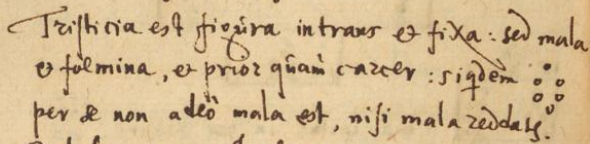 Tristicia est figura intrans et fixa: sed mala
et foemina, et prior quàm carcer: siqdem
per se non adeò mala est, nisi mala reddatˢ.